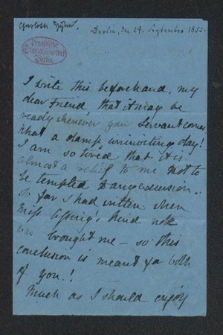 Berlin, den 29. September 1852.
I write this beforehand, my
dear Friend, that it may be
ready whenever your Servant comes.
What a damp uninviting day!
I am so tired that it is
almost a relief to me not to
be tempted
So far I had written when
Miss
brought me – so this
conclusion is meant for both
of you!
Much as I should enjoy